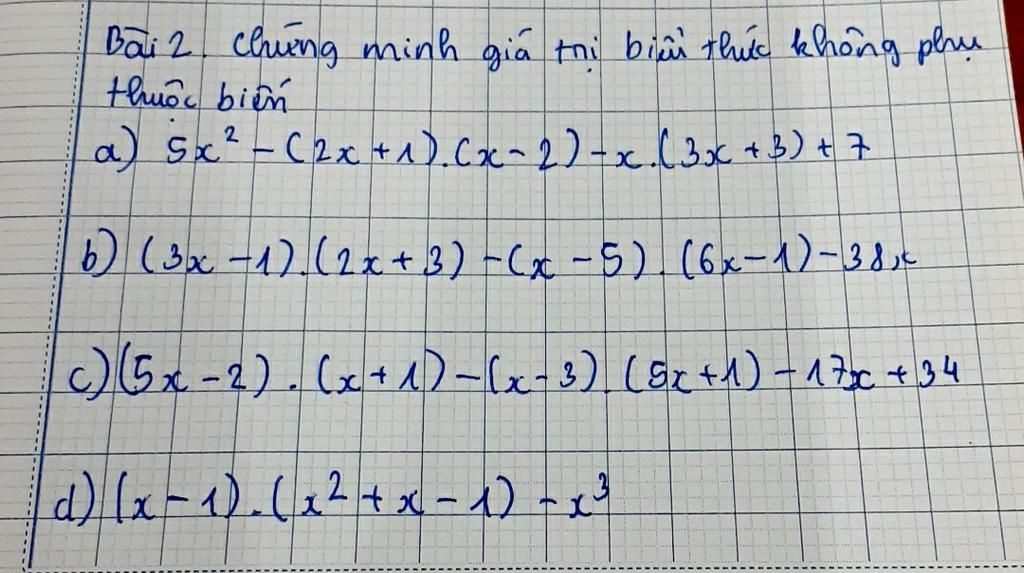 Bài 2. Chứng minh giá trị biểu thức không phụ
thuộc biến
a) 5x² - (2x + 1).(x - 2) - x.(3x + 3) + 7
b) (3x - 1).(2x + 3) - (x - 5).(6x - 1) - 38x
c) (5x - 2).(x + 1) - (x - 3).(5x + 1) - 17x + 34
d) (x - 1).(x² + x - 1) - x³